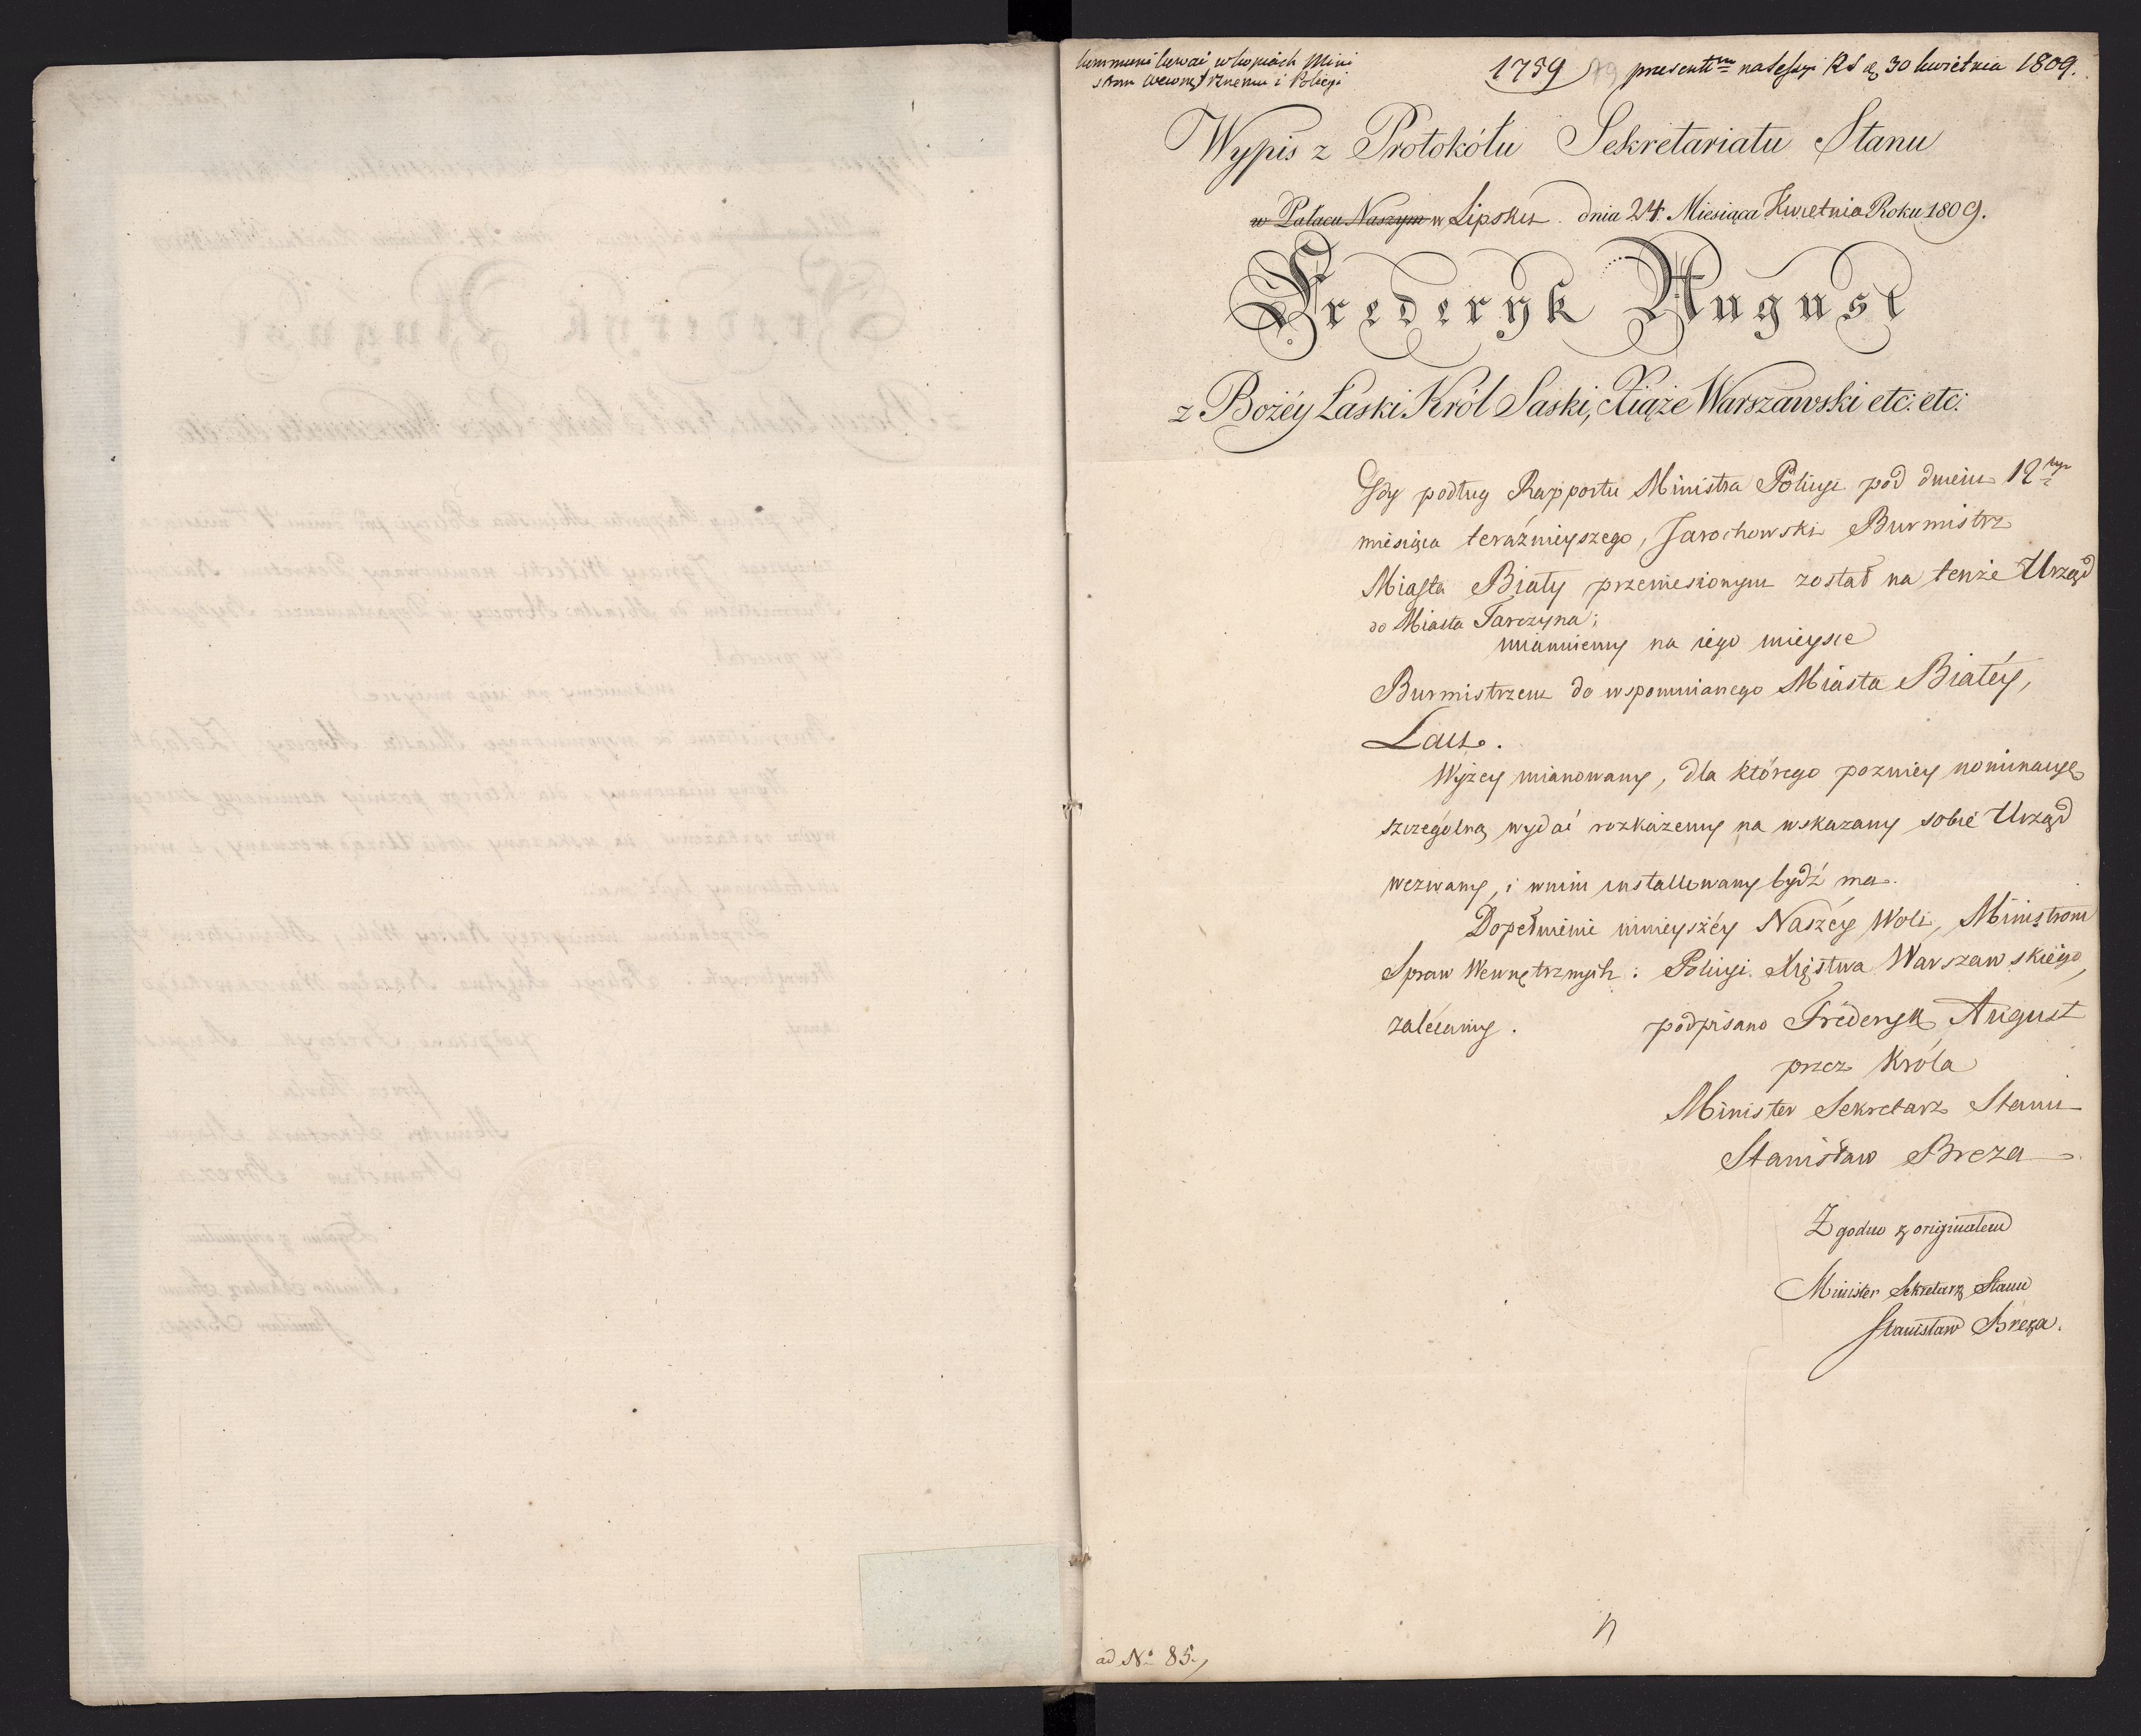 kommunikować w kopiach Mini
strom wewnętrznemu i Policyi
1759 presentm na Sessyi RS d 30 kwietnia 1809.
Wypis z Protokółu Sekretariatu Stanu
w Pałacu Naszym w Lipsku dnia 24 Miesiąca Kwietnia Roku 1809.
Frederyk August
z Bożéy Łaski Król Saski, Xiąże Warszawski etc: etc:
Gdy podług Rapportu Ministra Policyi pod dniem 12
miesiąca teraźnieyszego, Jarochowski Burmistrz
Miasta Biały przeniesionym został na tenże Urząd
do Miasta Tarczyna;
mianuiemy na iego mieysce
Burmistrzem do wspomnianego Miasta Białéy,
Wyżey mianowany, dla którego pozniey nominacyę
szczególną wydać rozkażemy na wskazany sobie Urząd
wezwany, i wnim installowany bydź ma.
Dopełnienie ninieyszéy Naszéy Woli, Ministrom
Spraw Wewnętrznych i Policyi Xięstwa Warszawskiego,
zalecamy. podpisano Fréderyk August
przez Króla
Minister Sekretarz Stanu
Stanisław Breza
Zgodno z originałem
Minister Sekretarz Stanu
Stanisław Breza.
ad No 85.